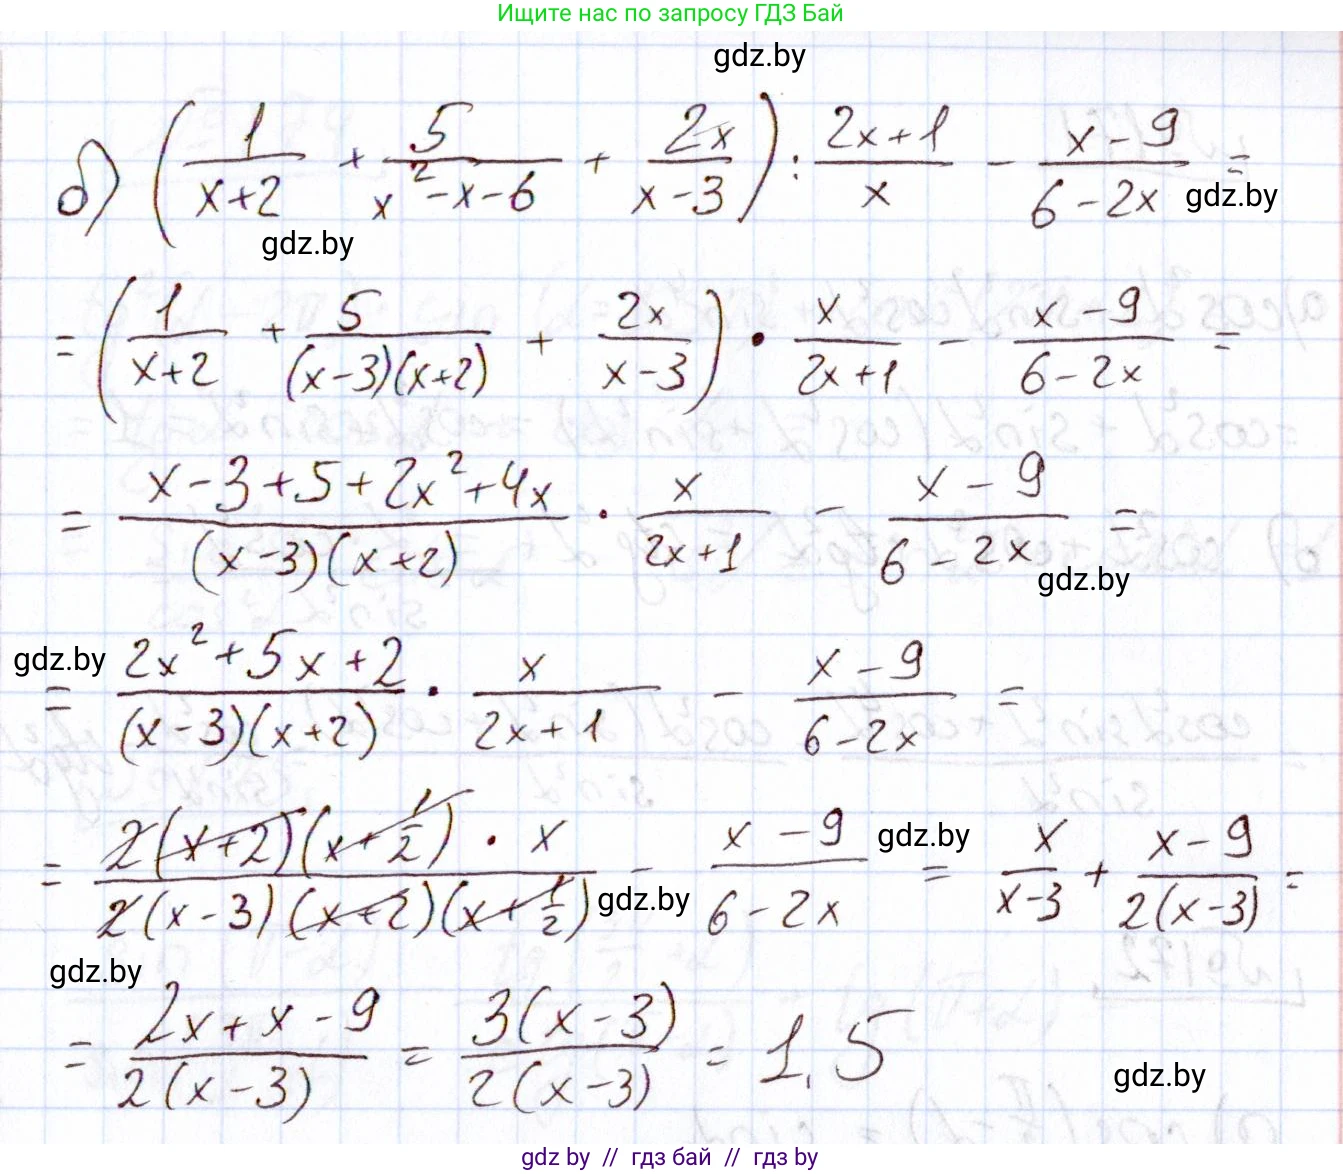 Ищите нас по запросу ГДЗ Бай
gdz.by
б) (1/(x+2) + 5/(x²-x-6) + 2x/(x-3)) : (2x+1)/x - (x-9)/(6-2x) =
gdz.by
gdz.by
= (1/(x+2) + 5/((x-3)(x+2)) + 2x/(x-3)) · x/(2x+1) - (x-9)/(6-2x) =
= (x-3+5+2x²+4x)/((x-3)(x+2)) · x/(2x+1) - (x-9)/(6-2x) =
gdz.by
gdz.by
= (2x²+5x+2)/((x-3)(x+2)) · x/(2x+1) - (x-9)/(6-2x) =
= (2(x+2)(x+1/2) · x)/(2(x-3)(x+2)(x+1/2)) - (x-9)/(6-2x) = x/(x-3) + (x-9)/(2(x-3)) =
gdz.by
gdz.by
gdz.by
= (2x+x-9)/(2(x-3)) = (3(x-3))/(2(x-3)) = 1,5
gdz.by
gdz by // гдз бай // гдз by